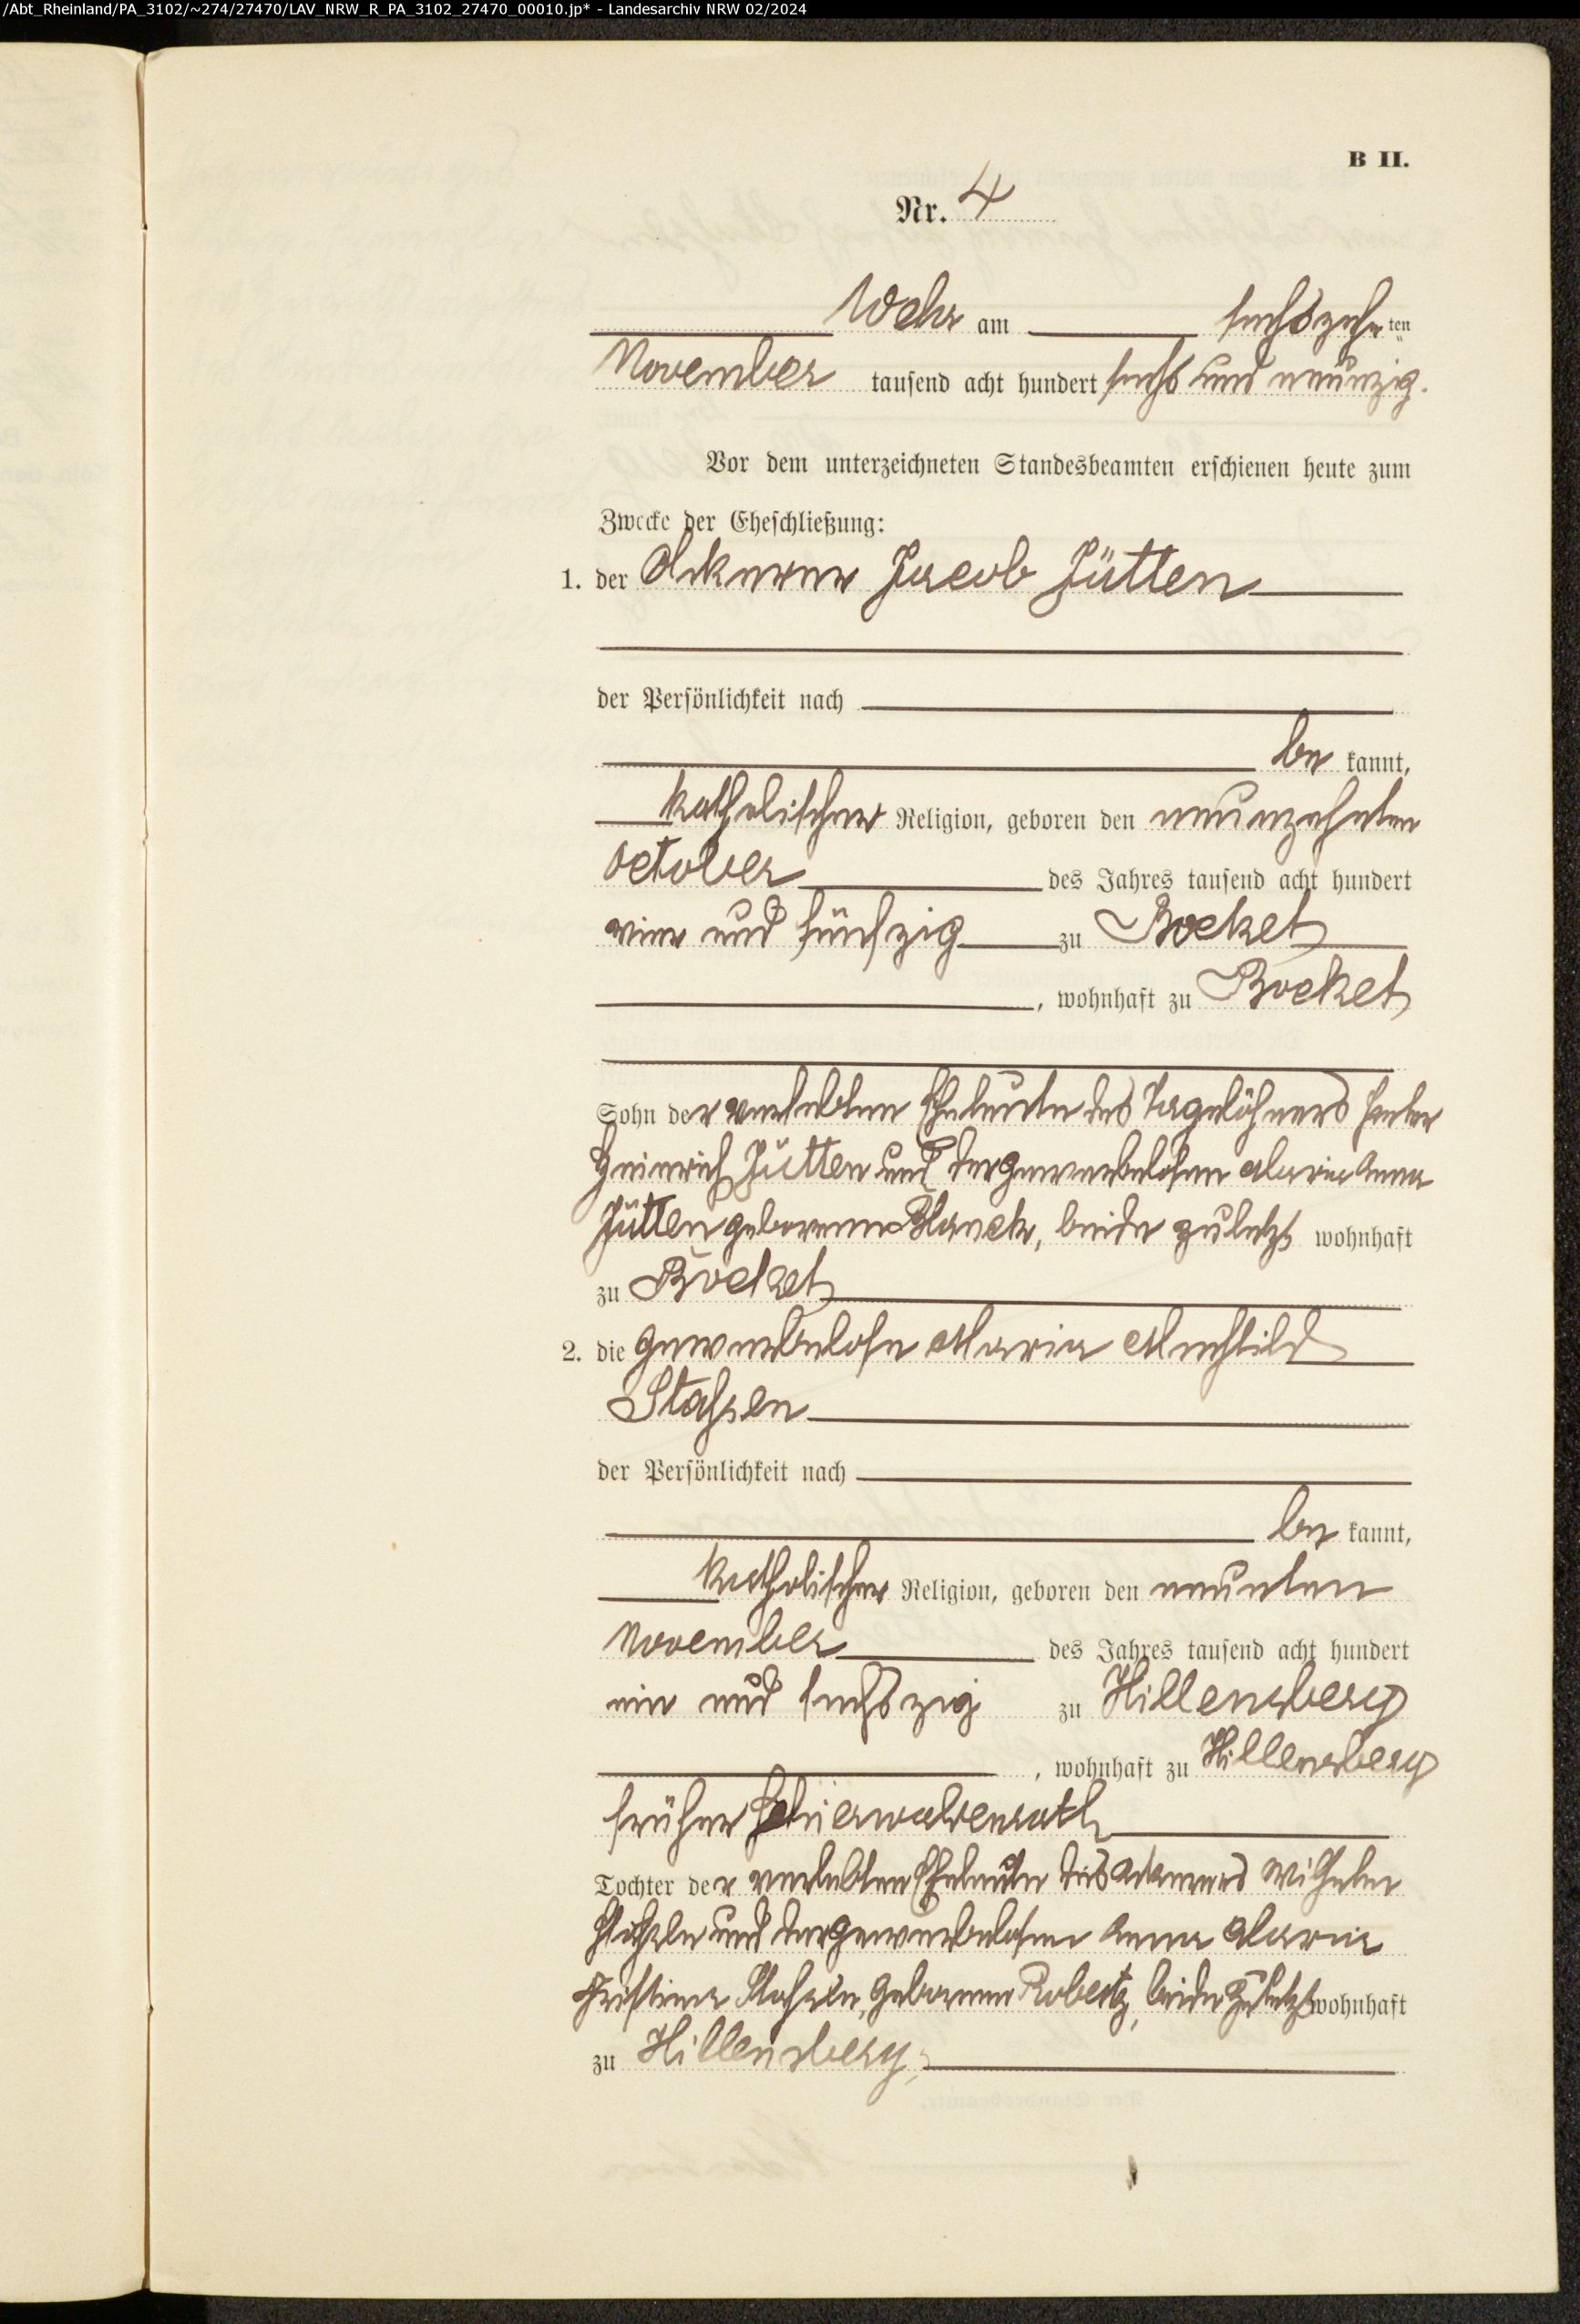 /Abt_Rheinland/PA_3102/~274/27470/LAV_NRW_R_PA_3102_27470_00010.jp* - Landesarchiv NRW 02/2024
B II.
Nr. 4
Wehr am sechszehnten
November tausend acht hundert sechs und neunzig.
Vor dem unterzeichneten Standesbeamten erschienen heute zum
Zwecke der Eheschließung:
1. der Ackerer Jacob Jütten
der Persönlichkeit nach
be kannt,
katholischer Religion, geboren den neunzehnten
October des Jahres tausend acht hundert
vier und fünfzig zu Bocket
, wohnhaft zu Bocket
Sohn der verlebten Eheleute des Tagelöhners Peter
Heinrich Jütten und der gewerbelosen Maria Anna
Jütten geborenen Planck, beide zuletzt wohnhaft
zu Bocket
2. die gewerbelose Maria Mechtild
Stassen
der Persönlichkeit nach
be kannt,
katholischer Religion, geboren den neunten
November des Jahres tausend acht hundert
ein und sechszig zu Hillensberg
, wohnhaft zu Hillensberg
früher Schierwaldenrath
Tochter der verlebten Eheleute des Ackerers Wilhelm
Stassen und der gewerbelosen Anna Maria
Christina Stassen, geborenen Robertz, beide zuletzt wohnhaft
zu Hillensberg,